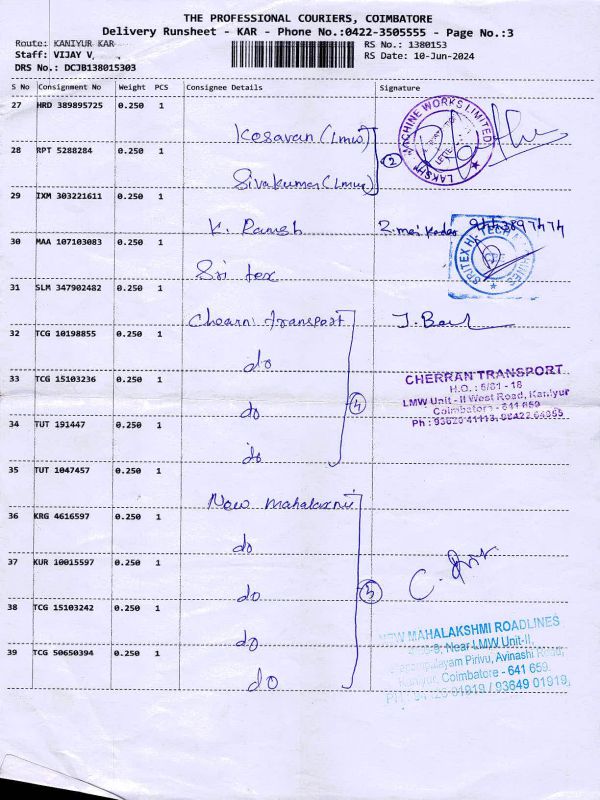 THE PROFESSIONAL COURIERS, COIMBATORE
Delivery Runsheet - KAR - Phone No.:0422-3505555 - Page No.:3
Route: KANIYUR KAR
Staff: VIJAY V,
DRS No.: DCJB138015303
RS No.: 1380153
RS Date: 10-Jun-2024
S No Consignment No Weight PCS Consignee Details Signature
27 HRD 389895725 0.250 1
Kesavan (Lmw)
LAKSHMI MACHINE WORKS LIMITED
28 RPT 5288284 0.250 1
Sivakumar (Lmw)
2
29 IXM 303221611 0.250 1
K. Ramesh
9443897474
30 MAA 107103083 0.250 1
Sri tex
SRITEX HI TECH MACHINES
31 SLM 347902482 0.250 1
transport
32 TCG 10198855 0.250 1
do
33 TCG 15103236 0.250 1
do
4
CHERRAN TRANSPORT
H.O. : 5/81 - 18
LMW Unit - II West Road, Kaniyur
Coimbatore - 641 659
Ph : 93620 41113,
34 TUT 191447 0.250 1
do
35 TUT 1047457 0.250 1
New mahalaxmi
36 KRG 4616597 0.250 1
do
37 KUR 10015597 0.250 1
do
5
38 TCG 15103242 0.250 1
do
39 TCG 50650394 0.250 1
do
NEW MAHALAKSHMI ROADLINES
Near LMW Unit-II,
Pirivu, Avinashi Road,
Kaniyur, Coimbatore - 641 659.
01919 / 93649 01919,